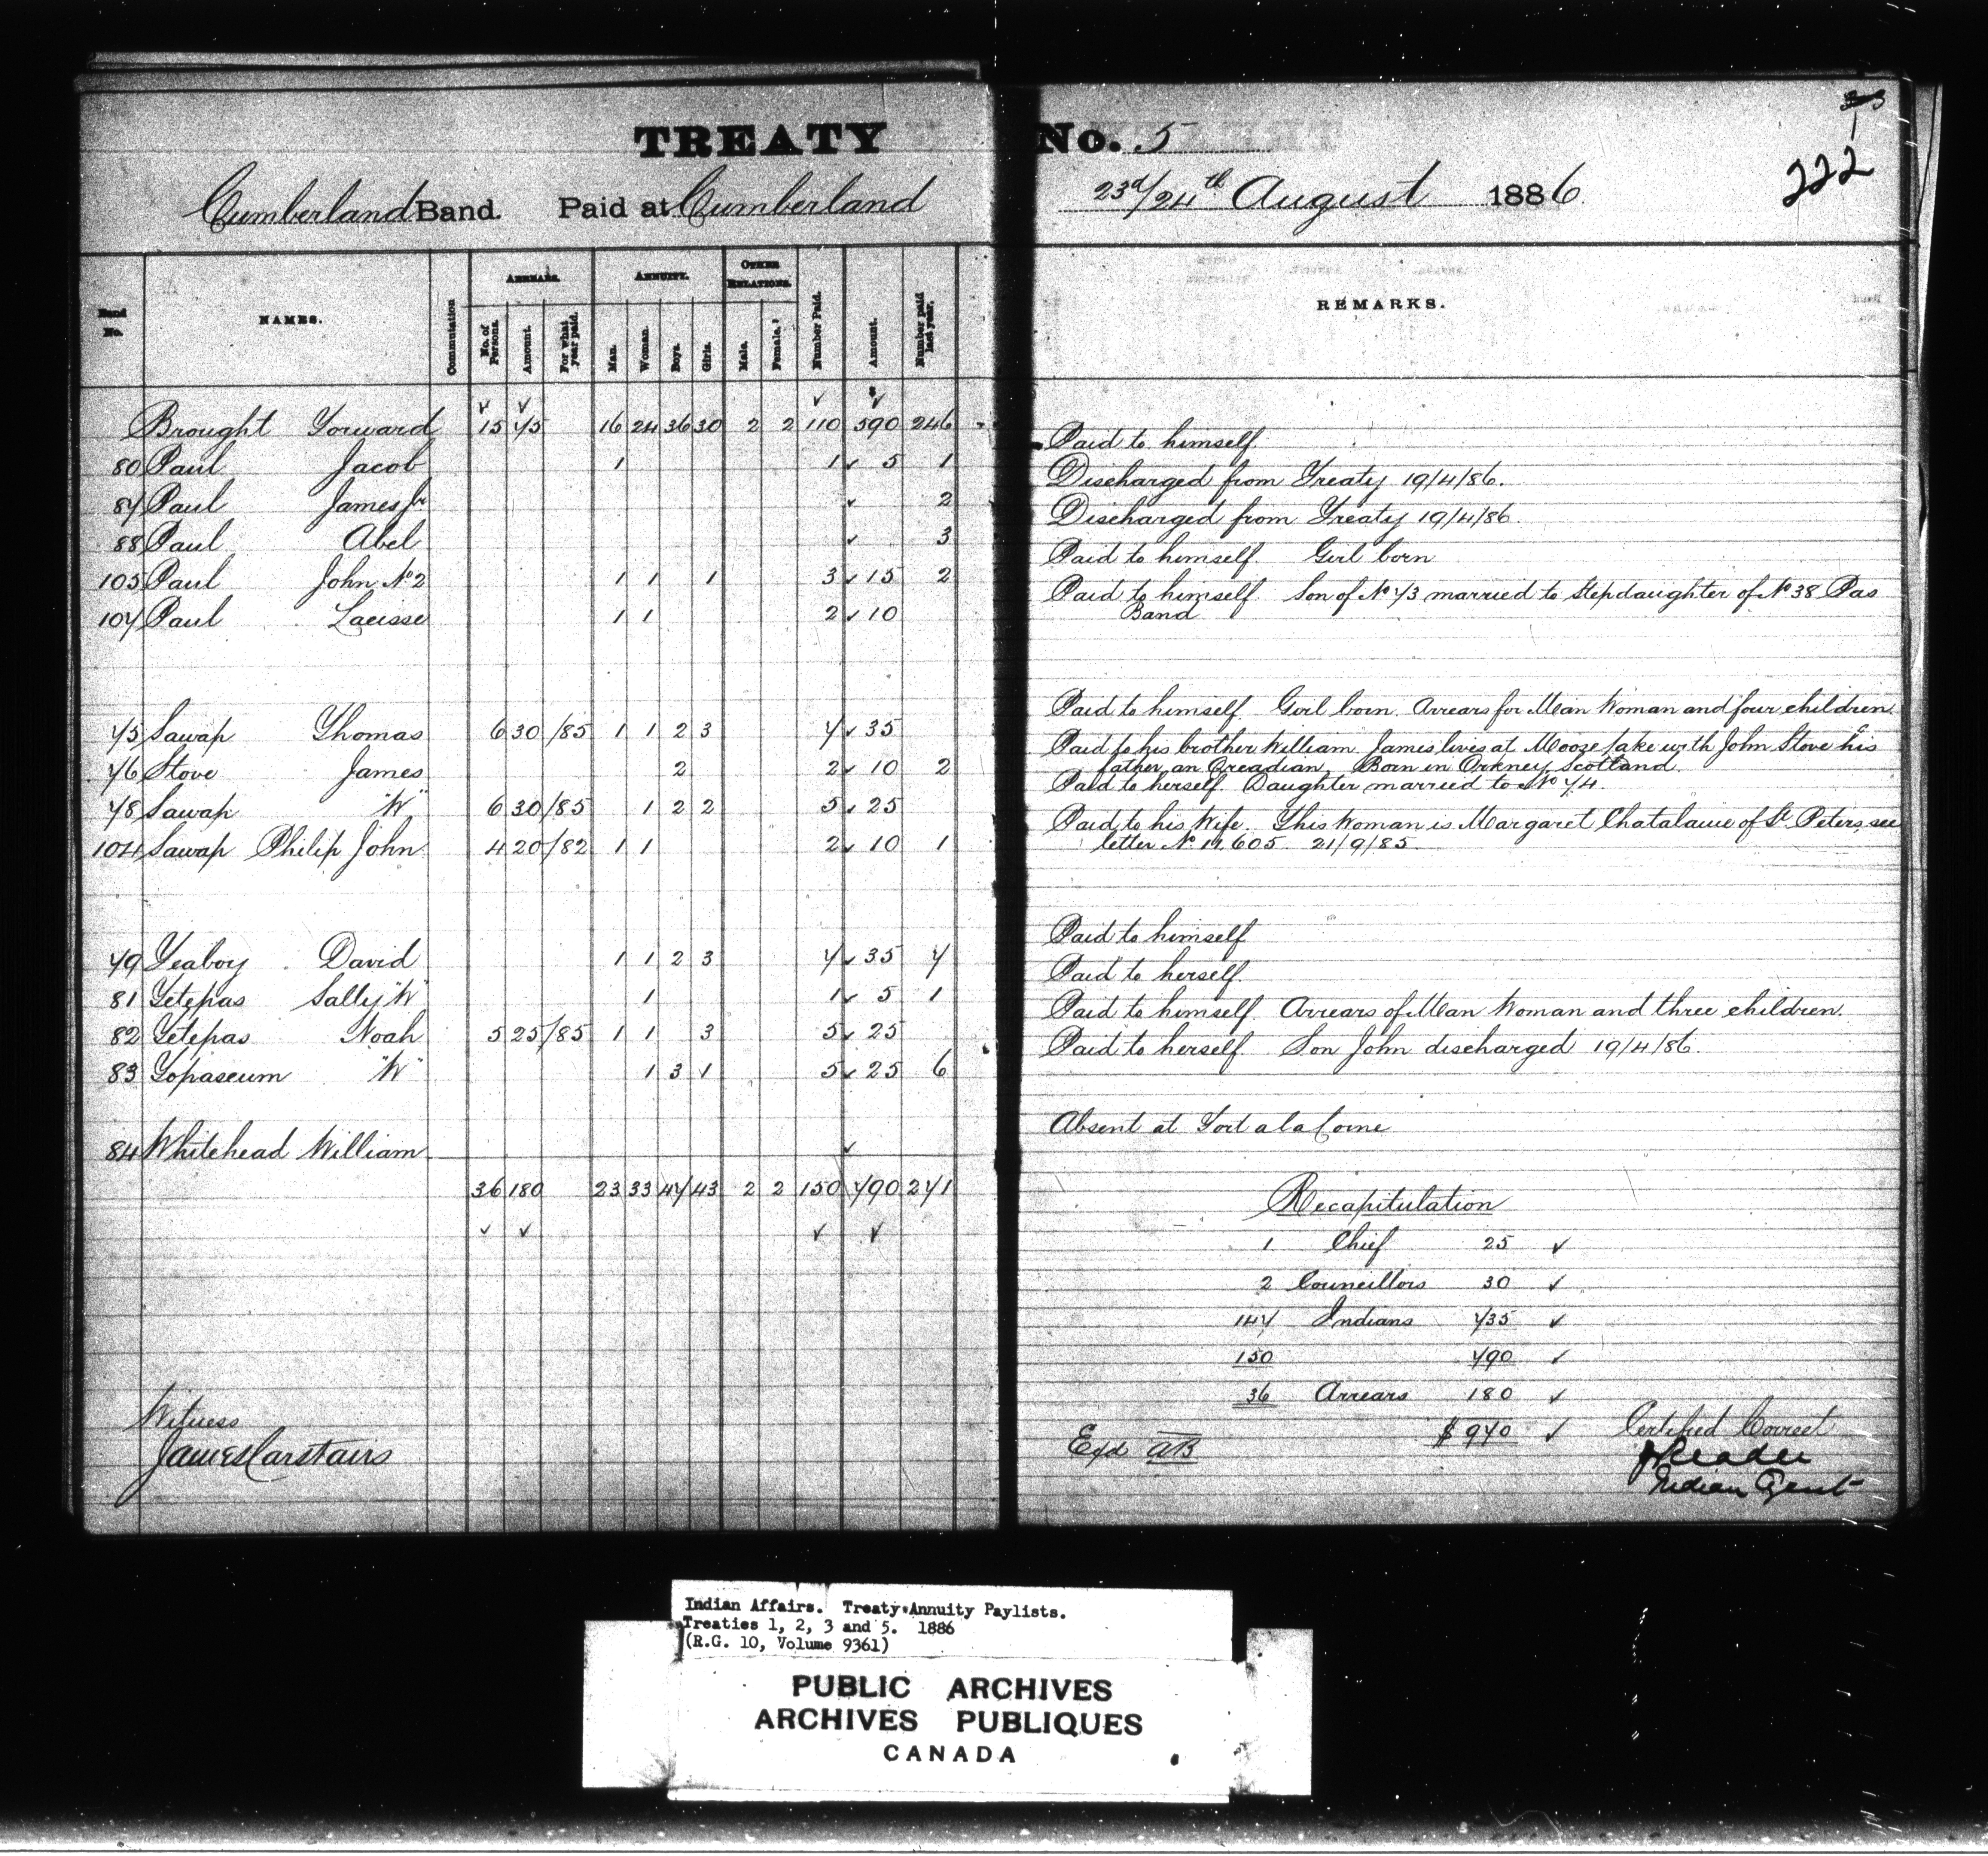 TREATY No. 5
33
222
Cumberland Band. Paid at Cumberland 23d/24th August 1886
Band No. NAMES. Commutation ARREARS. No. of Persons. Amount. For what year paid. ANNUITY. Man. Woman. Boys. Girls. OTHER RELATIONS. Male. Female. Number Paid. Amount. Number paid last year. REMARKS.
Brought Forward 15 75 16 24 36 30 2 2 110 590 246
80 Paul Jacob 1 1 5 1 Paid to himself
87 Paul James Jr 2 Discharged from Treaty 19/4/86.
88 Paul Abel 3 Discharged from Treaty 19/4/86.
105 Paul John No 2 1 1 1 3 15 2 Paid to himself. Girl born
107 Paul Lacisse 1 1 2 10 Paid to himself Son of No 73 married to Stepdaughter of No 38 Pas
Band
75 Sawap Thomas 6 30 /85 1 1 2 3 7 35 Paid to himself Girl born. Arrears for Man Woman and four children
76 Stove James 2 2 10 2 Paid to his brother William James lives at Mooze Lake with John Stove his
father an Orcadian. Born in Orkney Scotland.
78 Sawap "W" 6 30 /85 1 2 2 5 25 Paid to herself. Daughter married to No 74.
104 Sawap Philip John 4 20 /82 1 1 2 10 1 Paid to his Wife. This Woman is Margaret Chatalaine of St. Peters, see
letter No 605 21/9/85.
79 Teaboy David 1 1 2 3 7 35 7 Paid to himself
81 Tetepas Sally "W" 1 1 5 1 Paid to herself.
82 Tetepas Noah 5 25 /85 1 1 3 5 25 Paid to himself. Arrears of Man Woman and three children.
83 Topaseum "W" 1 3 1 5 25 6 Paid to herself Son John discharged 19/4/86.
84 Whitehead William Absent at Fort a la Corne
36 180 23 33 47 43 2 2 150 790 271
Recapitulation
1 Chief 25
2 Councillors 30
147 Indians 735
150 790
36 Arrears 180
$970
Witness
James Carstairs
Exd AB
Certified Correct
J Reader
Indian Agent
Indian Affairs. Treaty Annuity Paylists.
Treaties 1, 2, 3 and 5. 1886
(R.G. 10, Volume 9361)
PUBLIC ARCHIVES
ARCHIVES PUBLIQUES
CANADA